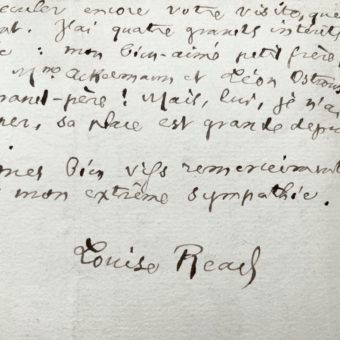 reculer encore votre visite, que
nt. J'ai quatre grands intérêts
: mon bien-aimé petit frère,
Mme Ackermann et Léon Ostrow
grand-père ! Mais, lui, je n'ai
ner, sa place est grande depuis
mes bien vifs remerciements
mon extrême sympathie.
Louise Read